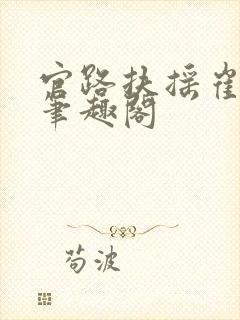 官路扶摇崔
笔趣阁
苟波